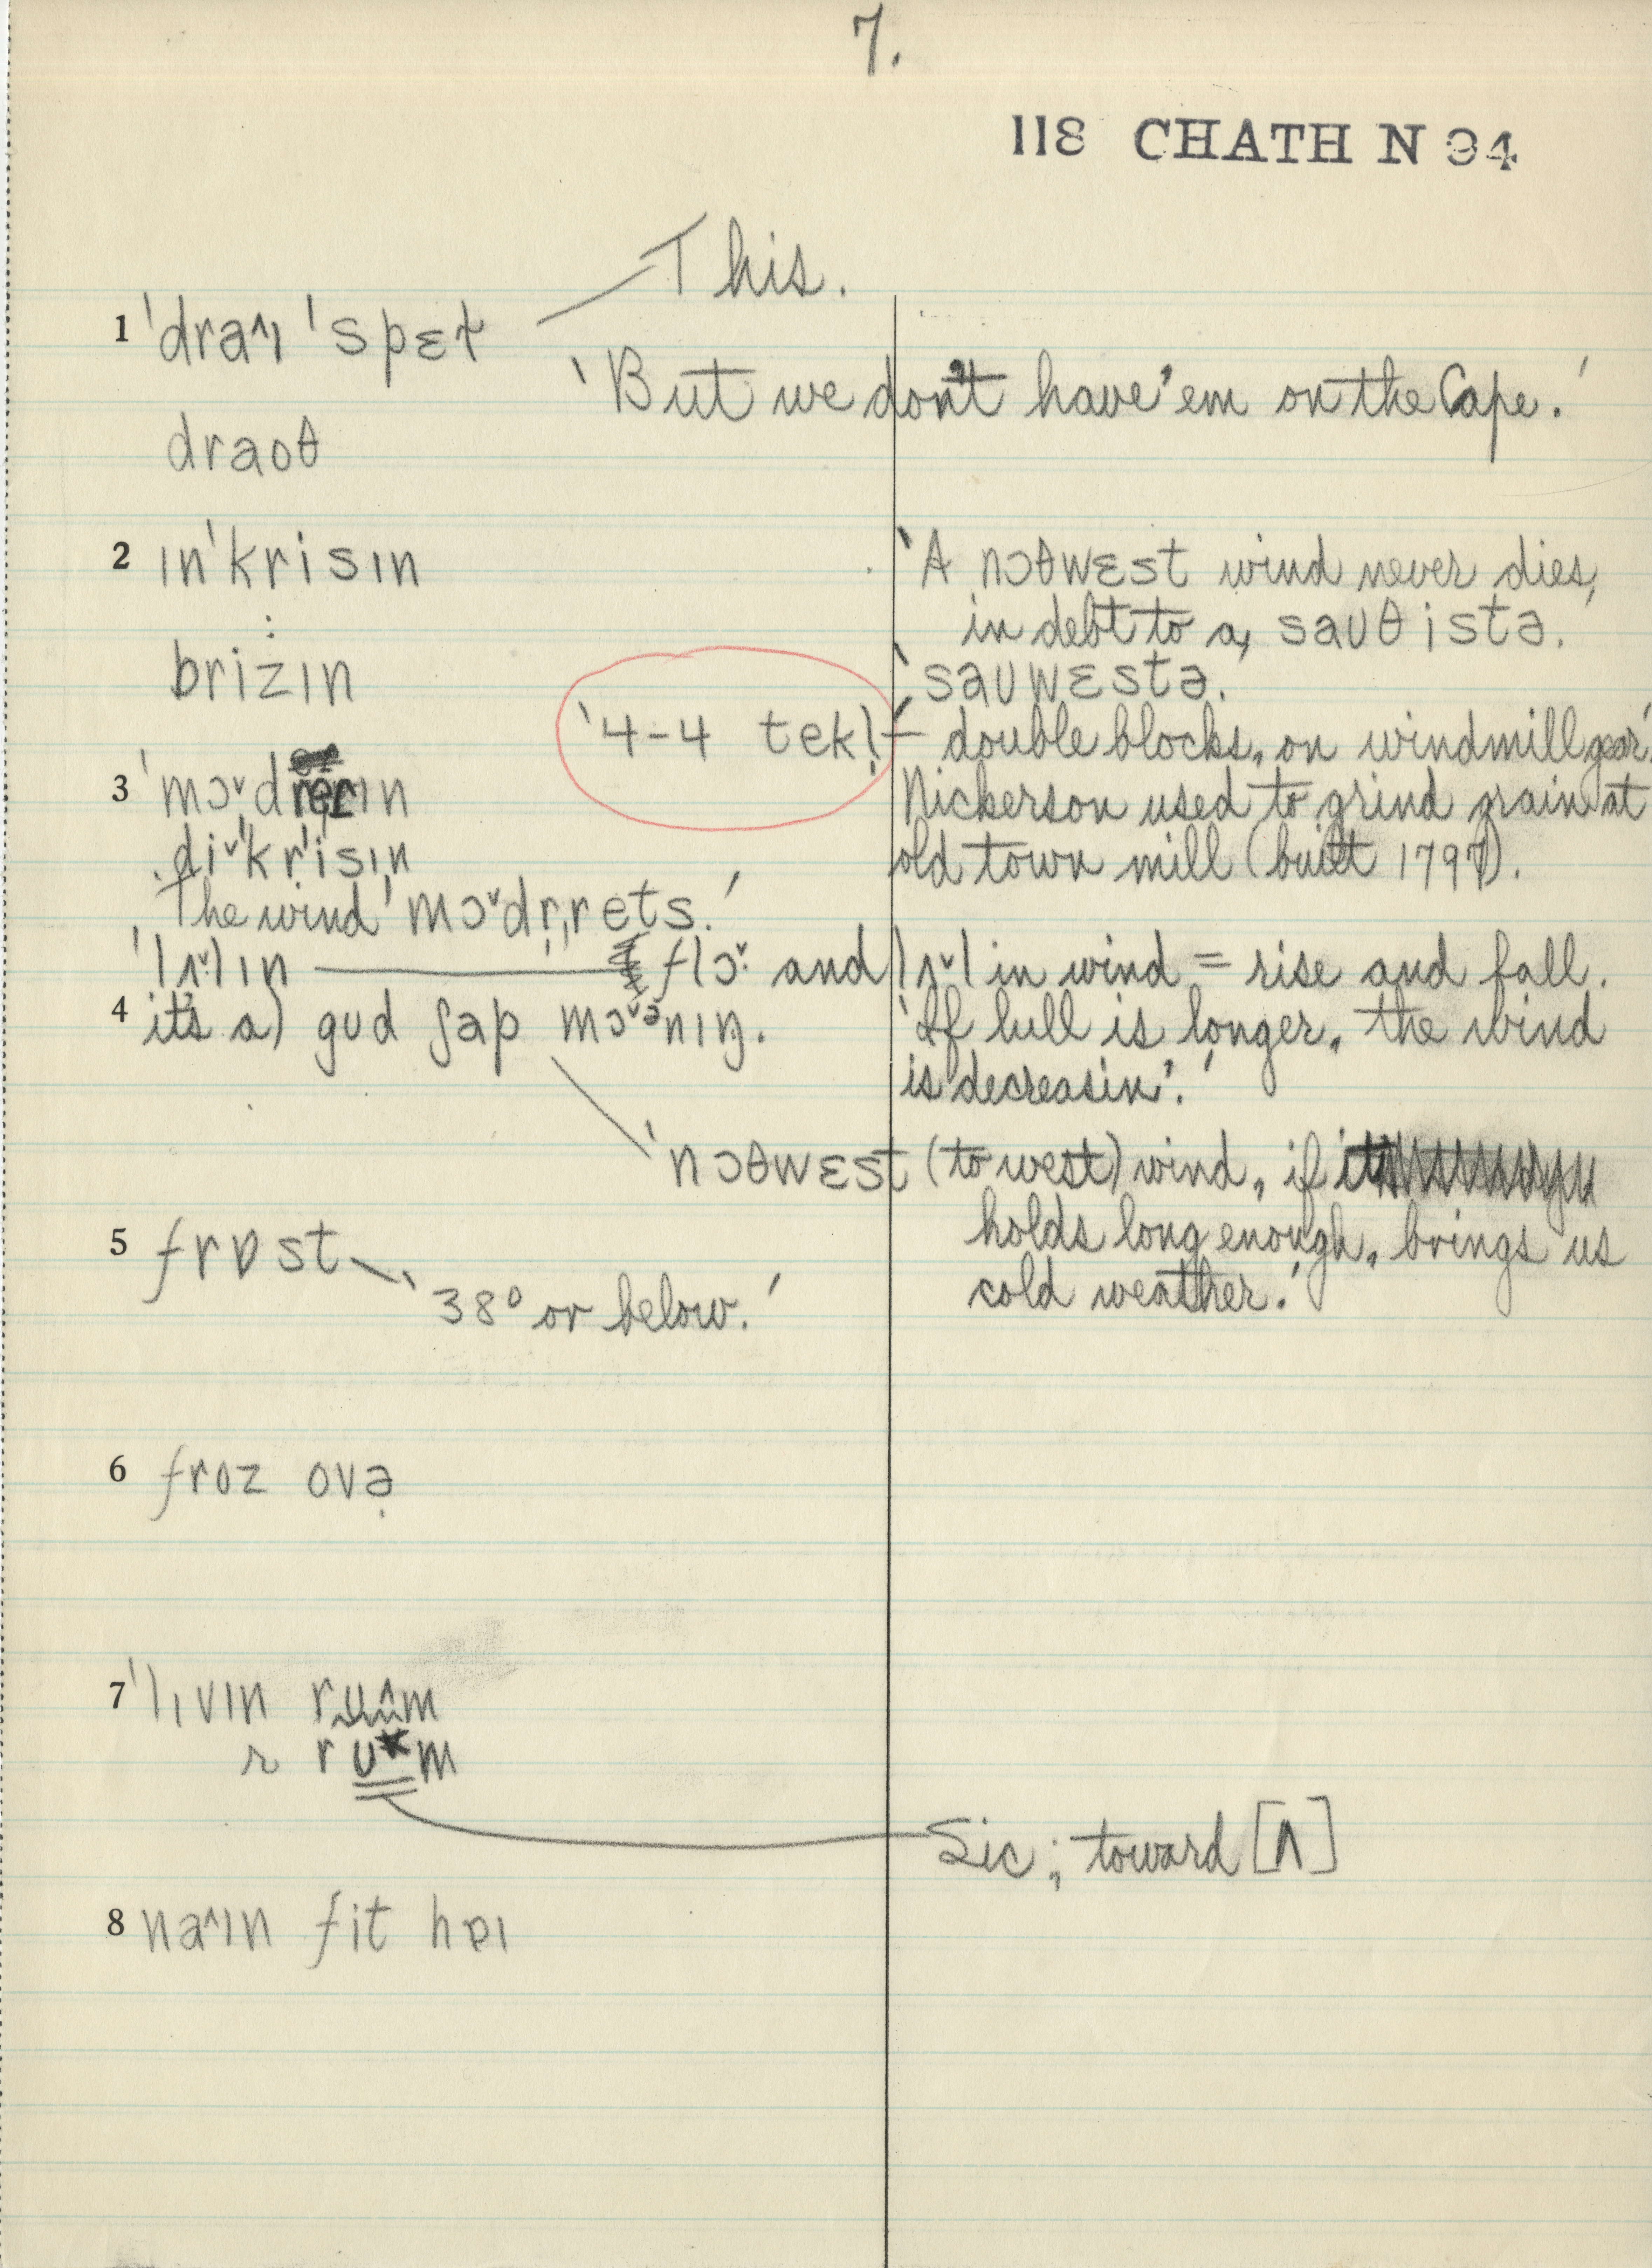 7.
118 CHATH N 94
This.
1 ˈdraˆɪ ˈspɛt
'But we don't have 'em on the Cape.'
draoθ
2 ɪnˈkrisɪn
'A nɔθwɛst wind never dies,
in debt to a, saʊθ istə.'
brizɪn
'saʊwɛstə.'
'4-4 tekl̩' double blocks, on windmill gear.'
3 ˈmɔˇd ɪn
Nickerson used to grind grain at
diˇˈkrisɪn
old town mill (built 1797).
The wind 'mɔˇdr̩rets.'
ˈlʌˇlɪn flɔˇ and lʌˇl in wind = rise and fall.
4 it's a) gʊd ʃap mɔˇᵊnɪŋ.
'If lull is longer, the wind
is decreasin'.'
'nɔθwɛst (to west) wind, if
holds long enough, brings us
cold weather.'
5 frɒst
'38° or below.'
6 froz ovə
7 ˈlɪvɪn ruˆm
r rʊm
Sic; toward [ʌ]
8 naˆɪn fit hɒɪ